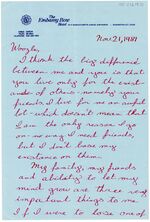 The Embassy Row
Hotel
Nov. 21, 1981
I think the big difference
between me and you is that
you live only for the exist-
ance of others - namely your
friends. I live for me an awful
lot - which doesn't mean that
I am the only reason I go
on - no way. I need friends,
but I don't base my
existance on them.
My family, my friends
and ability to let my
mind grow are three very
important things to me.
If I were to lose one of